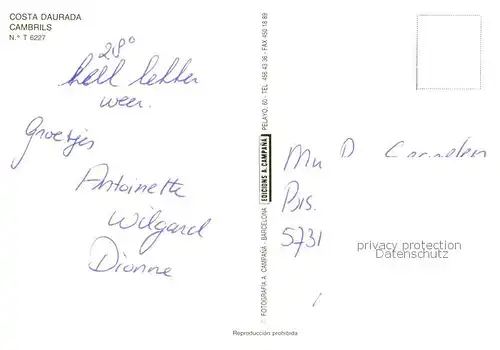 COSTA DAURADA
CAMBRILS
N.º T 6227
28°
heel lekker
weer.
Groetjes
Antoinette
Wilgard
Dionne
FOTOGRAFIA A. CAMPAÑA - BARCELONA EDICIONS A. CAMPAÑA PELAYO, 60 - TEL. 456 43 36 - FAX 450 18 89
5731
privacy protection
Datenschutz
Reproducción prohibida